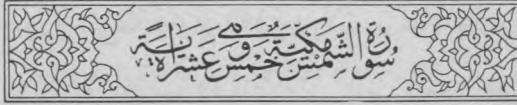 سُورَةُ الشَّمْسِ مَكِّيَّةٌ وَهِيَ خَمْسَ عَشْرَةَ اٰيَةً